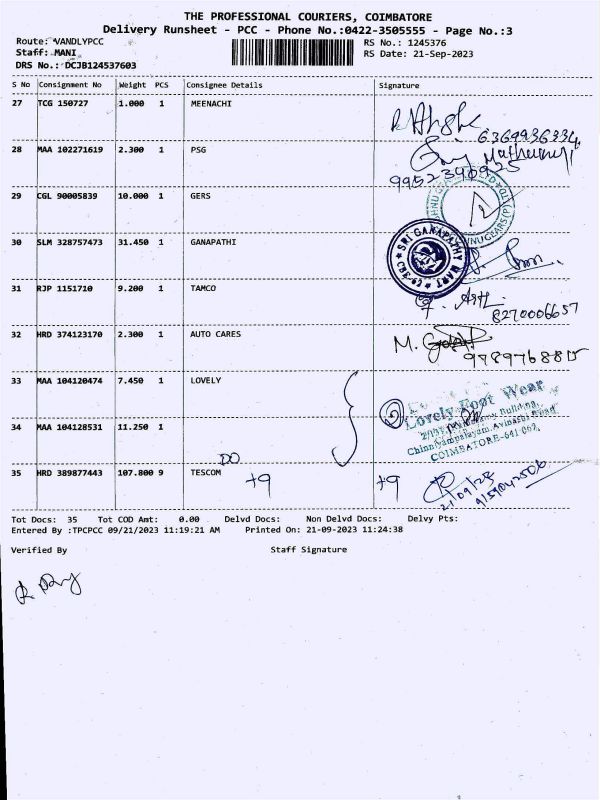 THE PROFESSIONAL COURIERS, COIMBATORE
Delivery Runsheet - PCC - Phone No.:0422-3505555 - Page No.:3
Route: VANDLYPCC
RS No.: 1245376
Staff: MANI
RS Date: 21-Sep-2023
DRS No.: DCJB124537603
S No Consignment No Weight PCS Consignee Details Signature
27 TCG 150727 1.000 1 MEENACHI
6369936334
28 MAA 102271619 2.300 1 PSG
9952390925
29 CGL 90005839 10.000 1 GERS
30 SLM 328757473 31.450 1 GANAPATHI
SRI GANAPATHY MART
CBE-69
31 RJP 1151710 9.200 1 TAMCO
8270006657
32 HRD 374123170 2.300 1 AUTO CARES
M.
9789768815
33 MAA 104120474 7.450 1 LOVELY
Lovely Foot Wear
Building,
Chinniyampalayam, Avinashi Road
COIMBATORE-641 062.
34 MAA 104128531 11.250 1
DO
35 HRD 389877443 107.800 9 TESCOM
+9 +9
21/09/23
9159042506
Tot Docs: 35 Tot COD Amt: 0.00 Delvd Docs: Non Delvd Docs: Delvy Pts:
Entered By :TPCPCC 09/21/2023 11:19:21 AM Printed On: 21-09-2023 11:24:38
Verified By Staff Signature